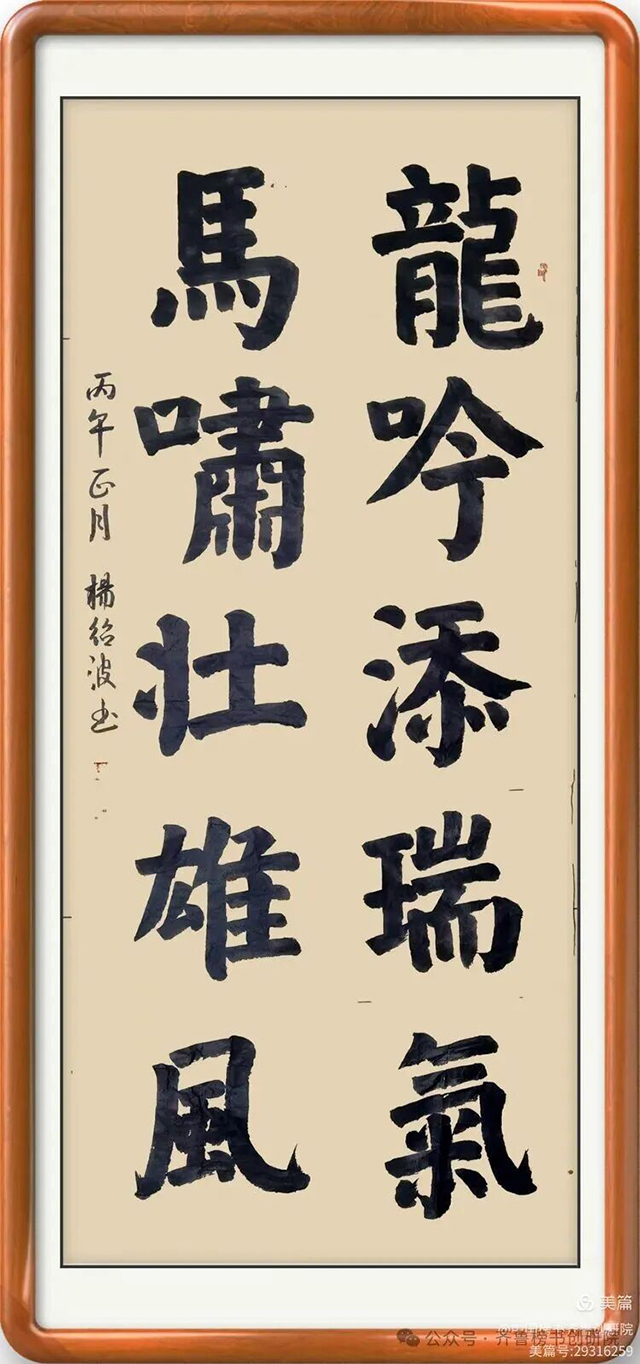 龍吟添瑞氣
馬嘯壯雄風
丙午正月 楊紹波書
美篇
公众号 · 齐鲁榜书创研院
美篇号:29316259